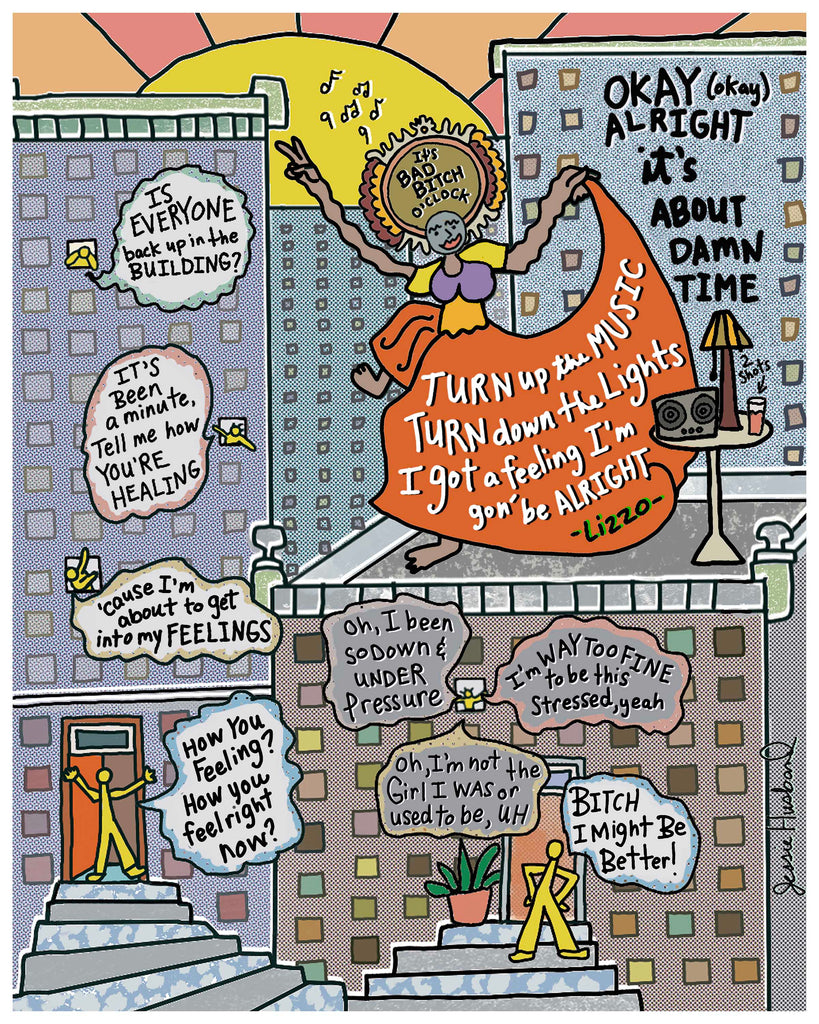 IT'S
BAD
BITCH
O'CLOCK
OKAY (okay)
ALRIGHT
it's
ABOUT
DAMN
TIME
IS
EVERYONE
back up in the
BUILDING?
TURN up the MUSIC
TURN down the Lights
I got a feeling I'm
gon' be ALRIGHT
-Lizzo-
2
Shots
IT'S
Been
a minute,
Tell me how
YOU'RE
HEALING
'cause I'm
about to get
into my FEELINGS
Oh, I been
SO DOWN &
UNDER
Pressure
I'm WAY TOO FINE
to be this
Stressed, yeah
How You
Feeling?
How you
feel right
now?
Oh, I'm not the
Girl I WAS or
used to be, UH
BITCH
I Might Be
Better!
Jessie Husband